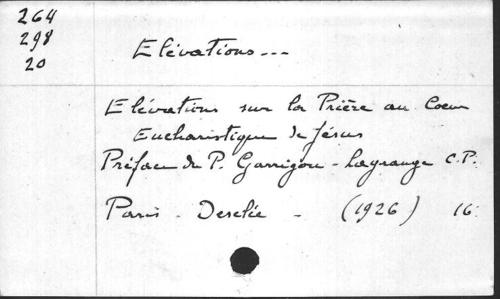 264
298
20
Elévations ---
Elévations sur la Prière au Coeur
Eucharistique de Jésus
Préface du P. Garrigou-Lagrange C.P.
Paris - Desclée - (1926) 16